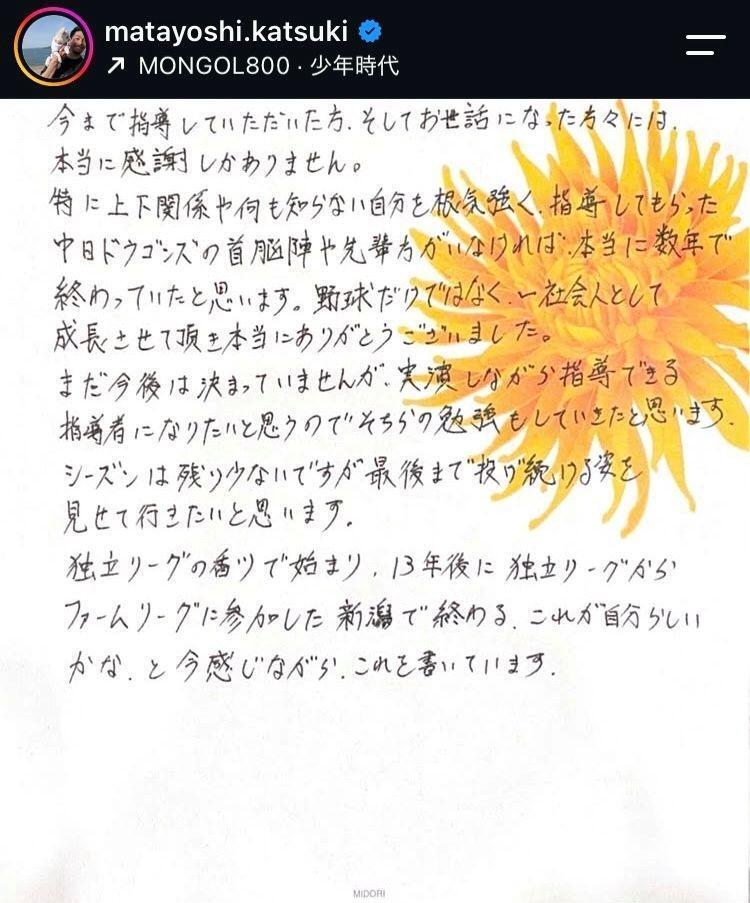 matayoshi.katsuki
MONGOL800・少年時代
今まで指導していただいた方、そしてお世話になった方々には、
本当に感謝しかありません。
特に上下関係や何も知らない自分を根気強く、指導してもらった
中日ドラゴンズの首脳陣や先輩方がいなければ、本当に数年で
終わっていたと思います。野球だけではなく、一社会人として
成長させて頂き本当にありがとうございました。
まだ今後は決まっていませんが、実演しながら指導できる
指導者になりたいと思うのでそちらの勉強もしていきたと思います。
シーズンは残り少ないですが最後まで投げ続ける姿を
見せて行きたいと思います。
独立リーグの香川で始まり、13年後に独立リーグから
ファームリーグに参加した新潟で終わる、これが自分らしい
かな、と今感じながら、これを書いています。
MIDORI